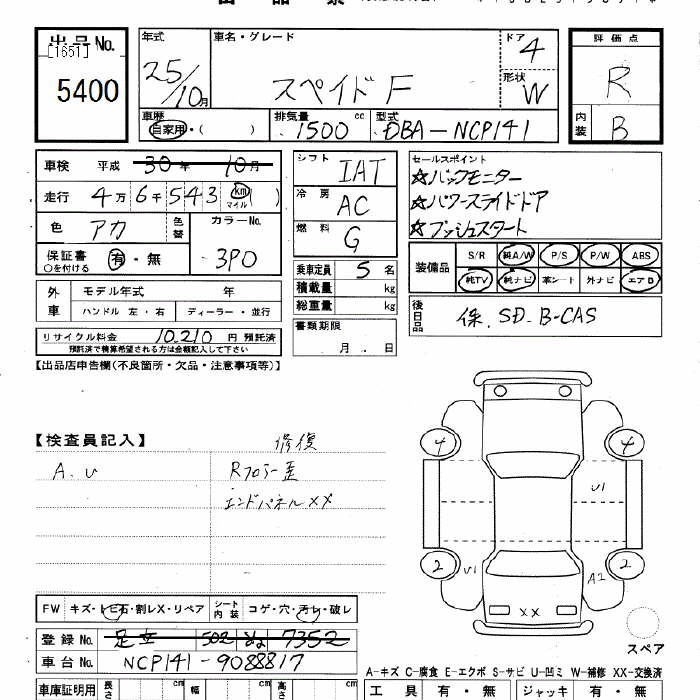 出品No.
[1651]
5400
年式
25/10月
車名・グレード
スペイド F
ドア
4
形状
W
評価点
R
内装
B
車歴
自家用・( )
排気量
1500 cc
型式
DBA-NCP141
車検 平成 30年 10月
走行 4万6千543 km マイル ( )
色 アカ
色替
カラーNo.
3P0
保証書 有・無
○を付ける
シフト
IAT
冷房
AC
燃料
G
セールスポイント
☆バックモニター
☆パワースライドドア
☆プッシュスタート
装備品
S/R 純A/W P/S P/W ABS
純TV 純ナビ 革シート 外ナビ エアB
外車
モデル年式 年
ハンドル 左・右
ディーラー・並行
乗車定員 5 名
積載量 kg
総重量 kg
後日品
保. SD. B-CAS
リサイクル料金 10,210 円 預託済
預託済で積算希望される方は金額記入して下さい
書類期限
月 . 日
【出品店申告欄(不良箇所・欠品・注意事項等)】
【検査員記入】
修復
A. U
Rフロアー歪
エンドパネルXX
4
4
U1
2
2
U1
A2
XX
スペア
FW キズ・トビ石・割レX・リペア
シート内装 コゲ・穴・汚レ・破レ
登録No. 足立 502 ぬ 7352
車台No. NCP141-9088817
A-キズ C-腐食 E-エクボ S-サビ U-凹ミ W-補修 XX-交換済
車庫証明用 長さ cm 幅 cm 高さ cm
工具 有・無 ジャッキ 有・無